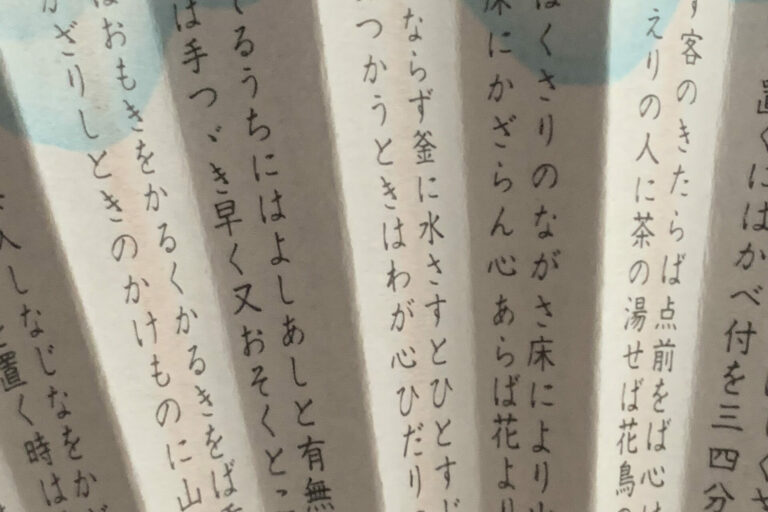 置くにはかべ付を三四分
客のきたらば点前をば心
えりの人に茶の湯せば花鳥の
はくさりのながさ床により
床にかざらん心あらば花より
ならず釜に水さすとひとすじ
つかうときはわが心ひだり
るうちにはよしあしと有無
は手つゞき早く又おそくと
おもきをかるくかるきをば
かざりしときのかけものに山
入しなじなをかざ
置く時は